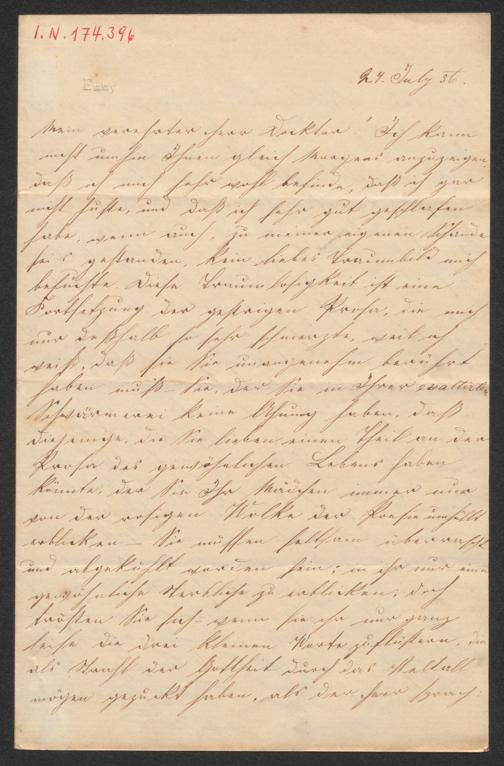 I.N. 174.396
27. July 56.
Mein verehrter Herr Docktor! Ich kann
nicht umhin Ihnen gleich Morgens anzuzeigen
daß ich mich sehr wohl befinde, daß ich gar
nicht huste, und daß ich sehr gut geschlafen
habe, wenn auch, zu meiner eigenen Schande
sei's gestanden, kein liebes Traumbild mich
besuchte. Diese Traumlosigkeit ist eine
Fortsetzung der gestrigen Prosa, die mich
nur deßhalb so sehr schmerzte, weil ich
weiß, daß sie Sie unangenehm berührt
haben muß – Sie, der Sie in Ihrer exaltirten
Schwärmerei keine Ahnung haben, daß
diejenige, die Sie lieben einen Theil an der
Prosa des gewöhnlichen Lebens haben
könnte, der Sie Ihr Mädchen immer nur
von der rosigen Wolke der Poesie umhüllt
erblicken – Sie müssen seltsam überrascht
und abgekühlt worden sein, in ihr nur eine
gewöhnliche Sterbliche zu erblicken, doch
trösten Sie sich – wenn Sie ihr nur ganz
leise die drei kleinen Worte zuflüstern, die
als Strahl der Gottheit durch das Weltall
mögen gezuckt haben, als der Herr sprach: